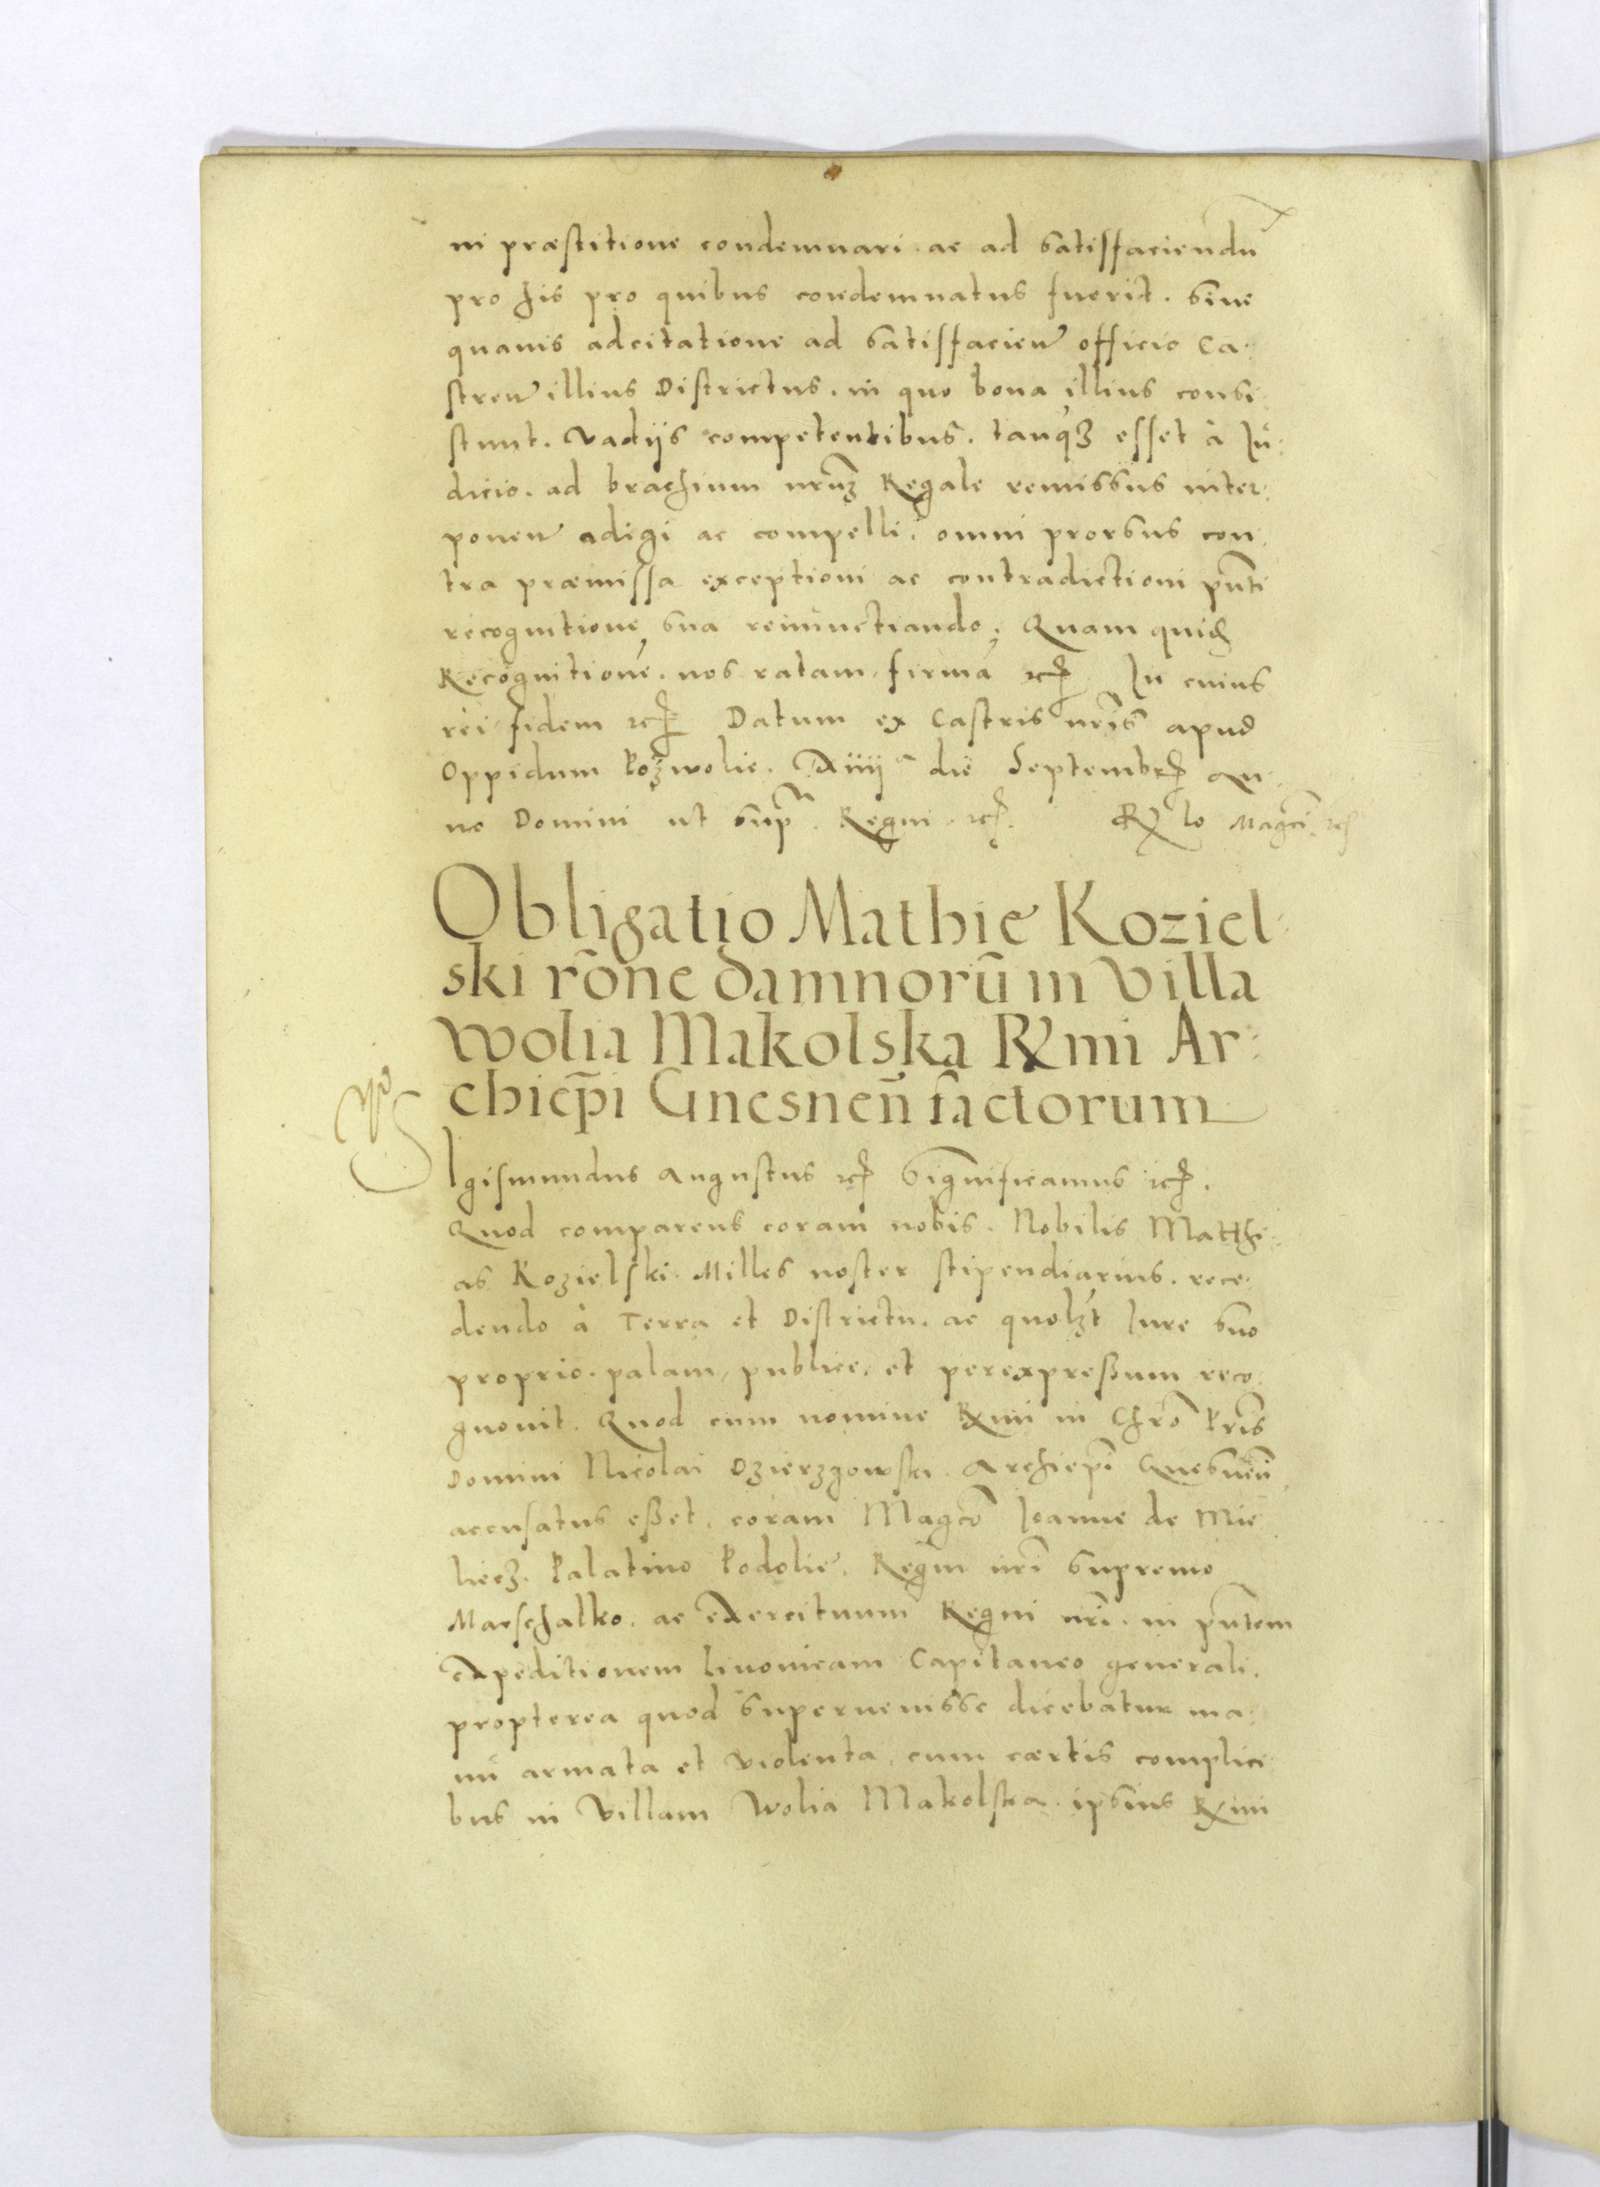 ni præstitione condemnari. ac ad satisfaciendũ
pro his pro quibus condemnatus fuerit. sine
quauis adcitatione ad satisfacien̄ officio Ca-
stren̄ illius Districtus. in quo bona illius consi
stunt. vadijs competentibus. tanq̃ȝ esset à Iu-
dicio. ad brachium nrũȝ Regale remissus inter-
ponen̄ adigi ac compelli. omni prorsus con-
tra præmissa exceptioni ac contradictioni pñti
recognitione sua renunctiando; Quam quid̃
Recognitionẽ. nos ratam firmã etc̃ In cuius
rei fidem etc̃ Datum ex Castris nr̃is apud
Oppidum Pozwolie. Xiiijᵃ die Septembr̃ an-
no Domini ut supᵃ. Regni. etc̃. Rᵒ lo Magc̃i. etc̃
Obligatio Mathie Koziel-
ski rõne damnorũ in villa
wolia Makolska Rmi Ar-
chiep̃i Gnesnen̄ factorum
Sigismundus Augustus etc̃ Significamus etc̃.
Quod comparens coram nobis. Nobilis Matthi-
as Kozielski. Milles noster stipendiarius. rece-
dendo à Terra et Districtu. ac quolȝt Iure suo
proprio. palam, publice, et perexpreßum reco-
gnouit. Quod cum nomine Rmi in Chrõ Pr̃is
Domini Nicolai Dzierzgowski. Archiep̃i Gnesnen̄
accusatus eßet. coram Magco Ioanne de Mie
liecz. Palatino Podolie. Regni nr̃i supremo
Marschalko. ac exercituum Regni nr̃i. in pñtem
expeditionem Liuonicam Capitaneo generali.
propterea quod superuenisse dicebatur ma-
nu armata et violenta. cum cærtis complici
bus in villam Wolia Makolska. ipsius Rmi